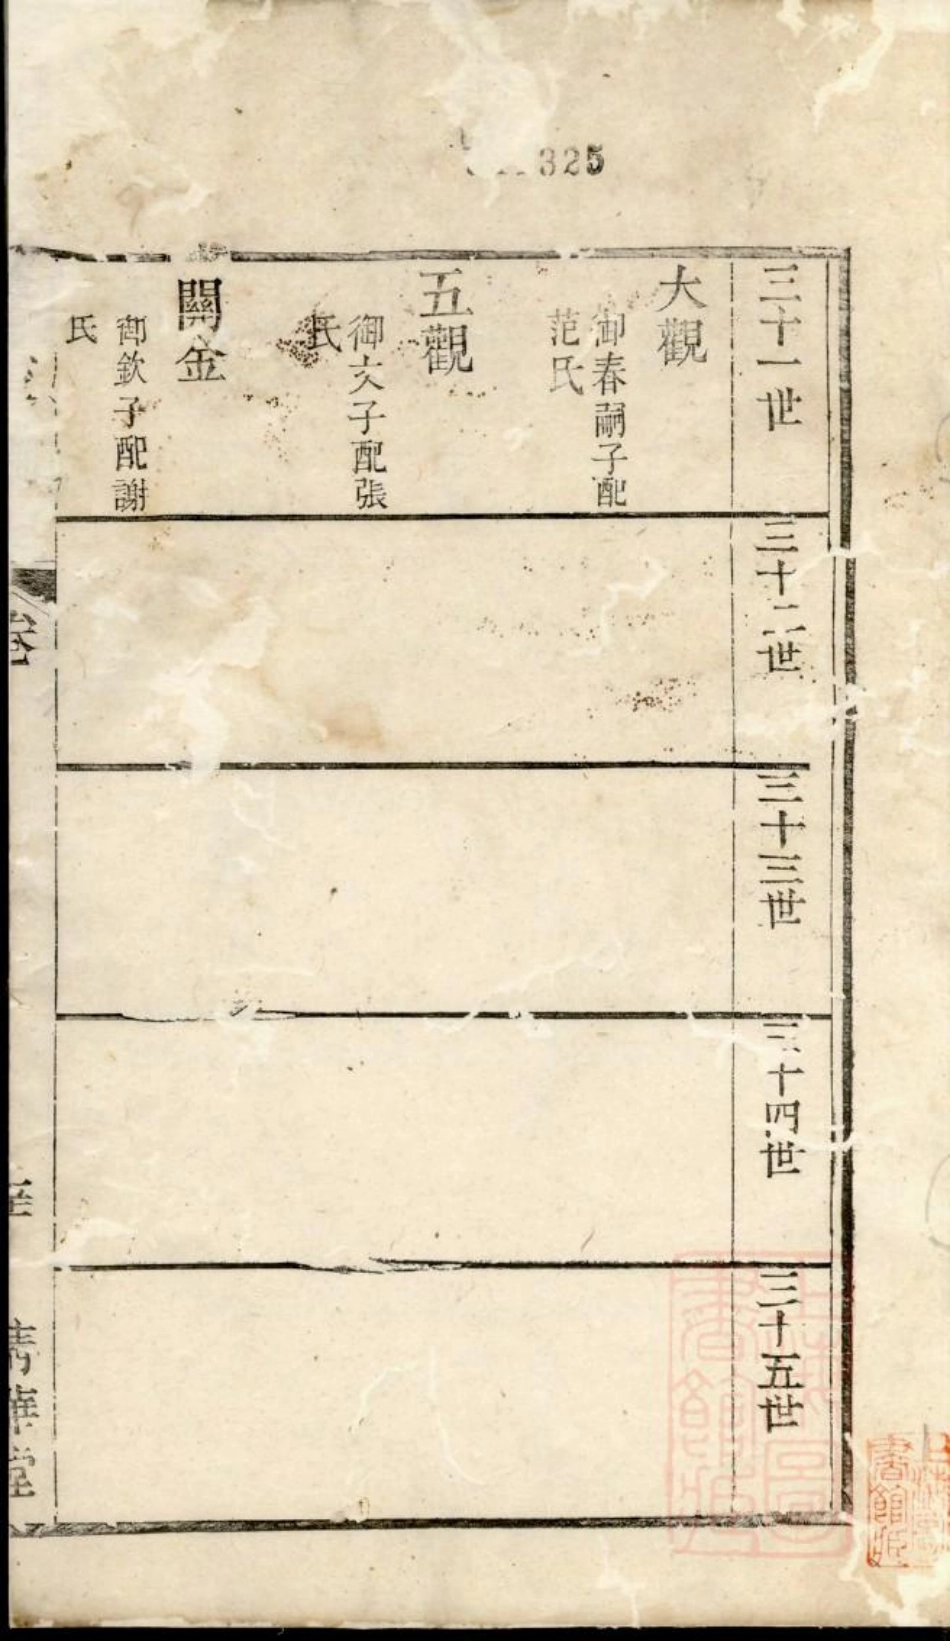 325
三十一世
大觀
御春嗣子配
范氏
五觀
御文子配張
氏
開金
御欽子配謝
氏
三十二世
三十三世
三十四世
三十五世
卷
清華堂